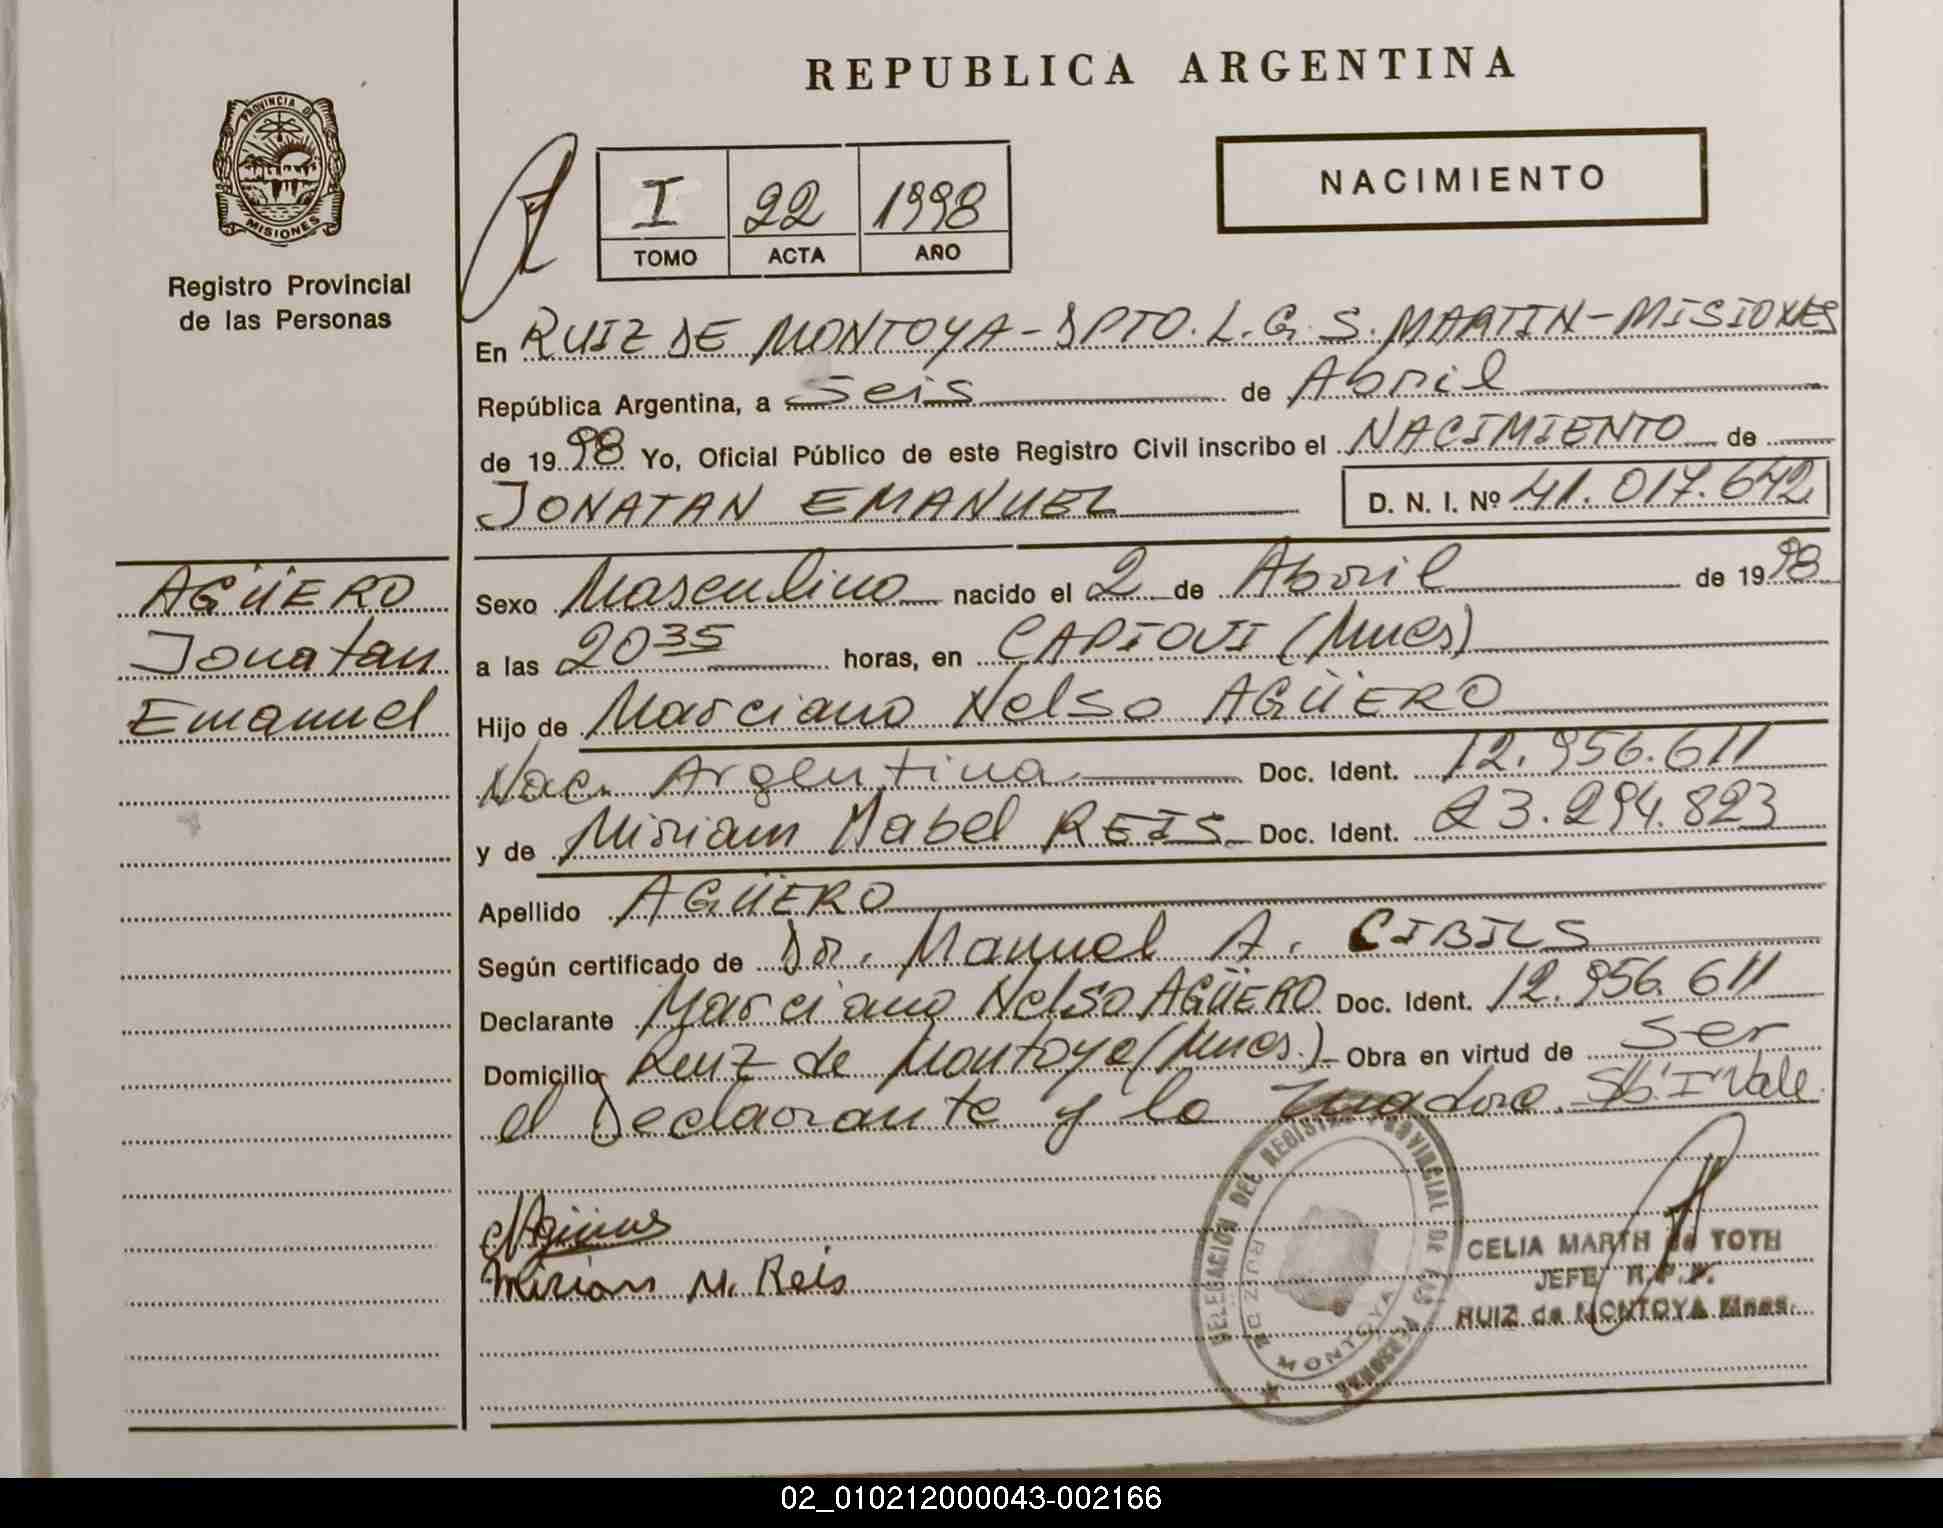 REPUBLICA ARGENTINA
PROVINCIA DE
MISIONES
Registro Provincial
de las Personas
I 22 1998
TOMO ACTA AÑO
NACIMIENTO
En RUIZ DE MONTOYA - DPTO. L. G. S. MARTIN - MISIONES
República Argentina, a Seis de Abril
de 1998 Yo, Oficial Público de este Registro Civil inscribo el NACIMIENTO de
JONATAN EMANUEL D. N. I. Nº 41.017.642
AGÜERO
Jonatan
Emanuel
Sexo Masculino nacido el 2 de Abril de 1998
a las 20 35 horas, en CAPIOVI (Mnes)
Hijo de Marciano Nelso AGÜERO
Nac. Argentina Doc. Ident. 12.956.611
y de Miriam Mabel REIS Doc. Ident. 23.294.823
Apellido AGÜERO
Según certificado de Dr. Manuel A. CIBILS
Declarante Marciano Nelso AGÜERO Doc. Ident. 12.956.611
Domicilio Ruiz de Montoya (Mnes.) Obra en virtud de Ser
el Declarante y la madre. S/b. "I" Vale.
Mirian M. Reis
DELEGACION DEL REGISTRO PROVINCIAL DE LAS PERSONAS
RUIZ DE MONTOYA
CELIA MARTH de TOTH
JEFE R.P.P.
RUIZ de MONTOYA Mnes.
02_010212000043-002166